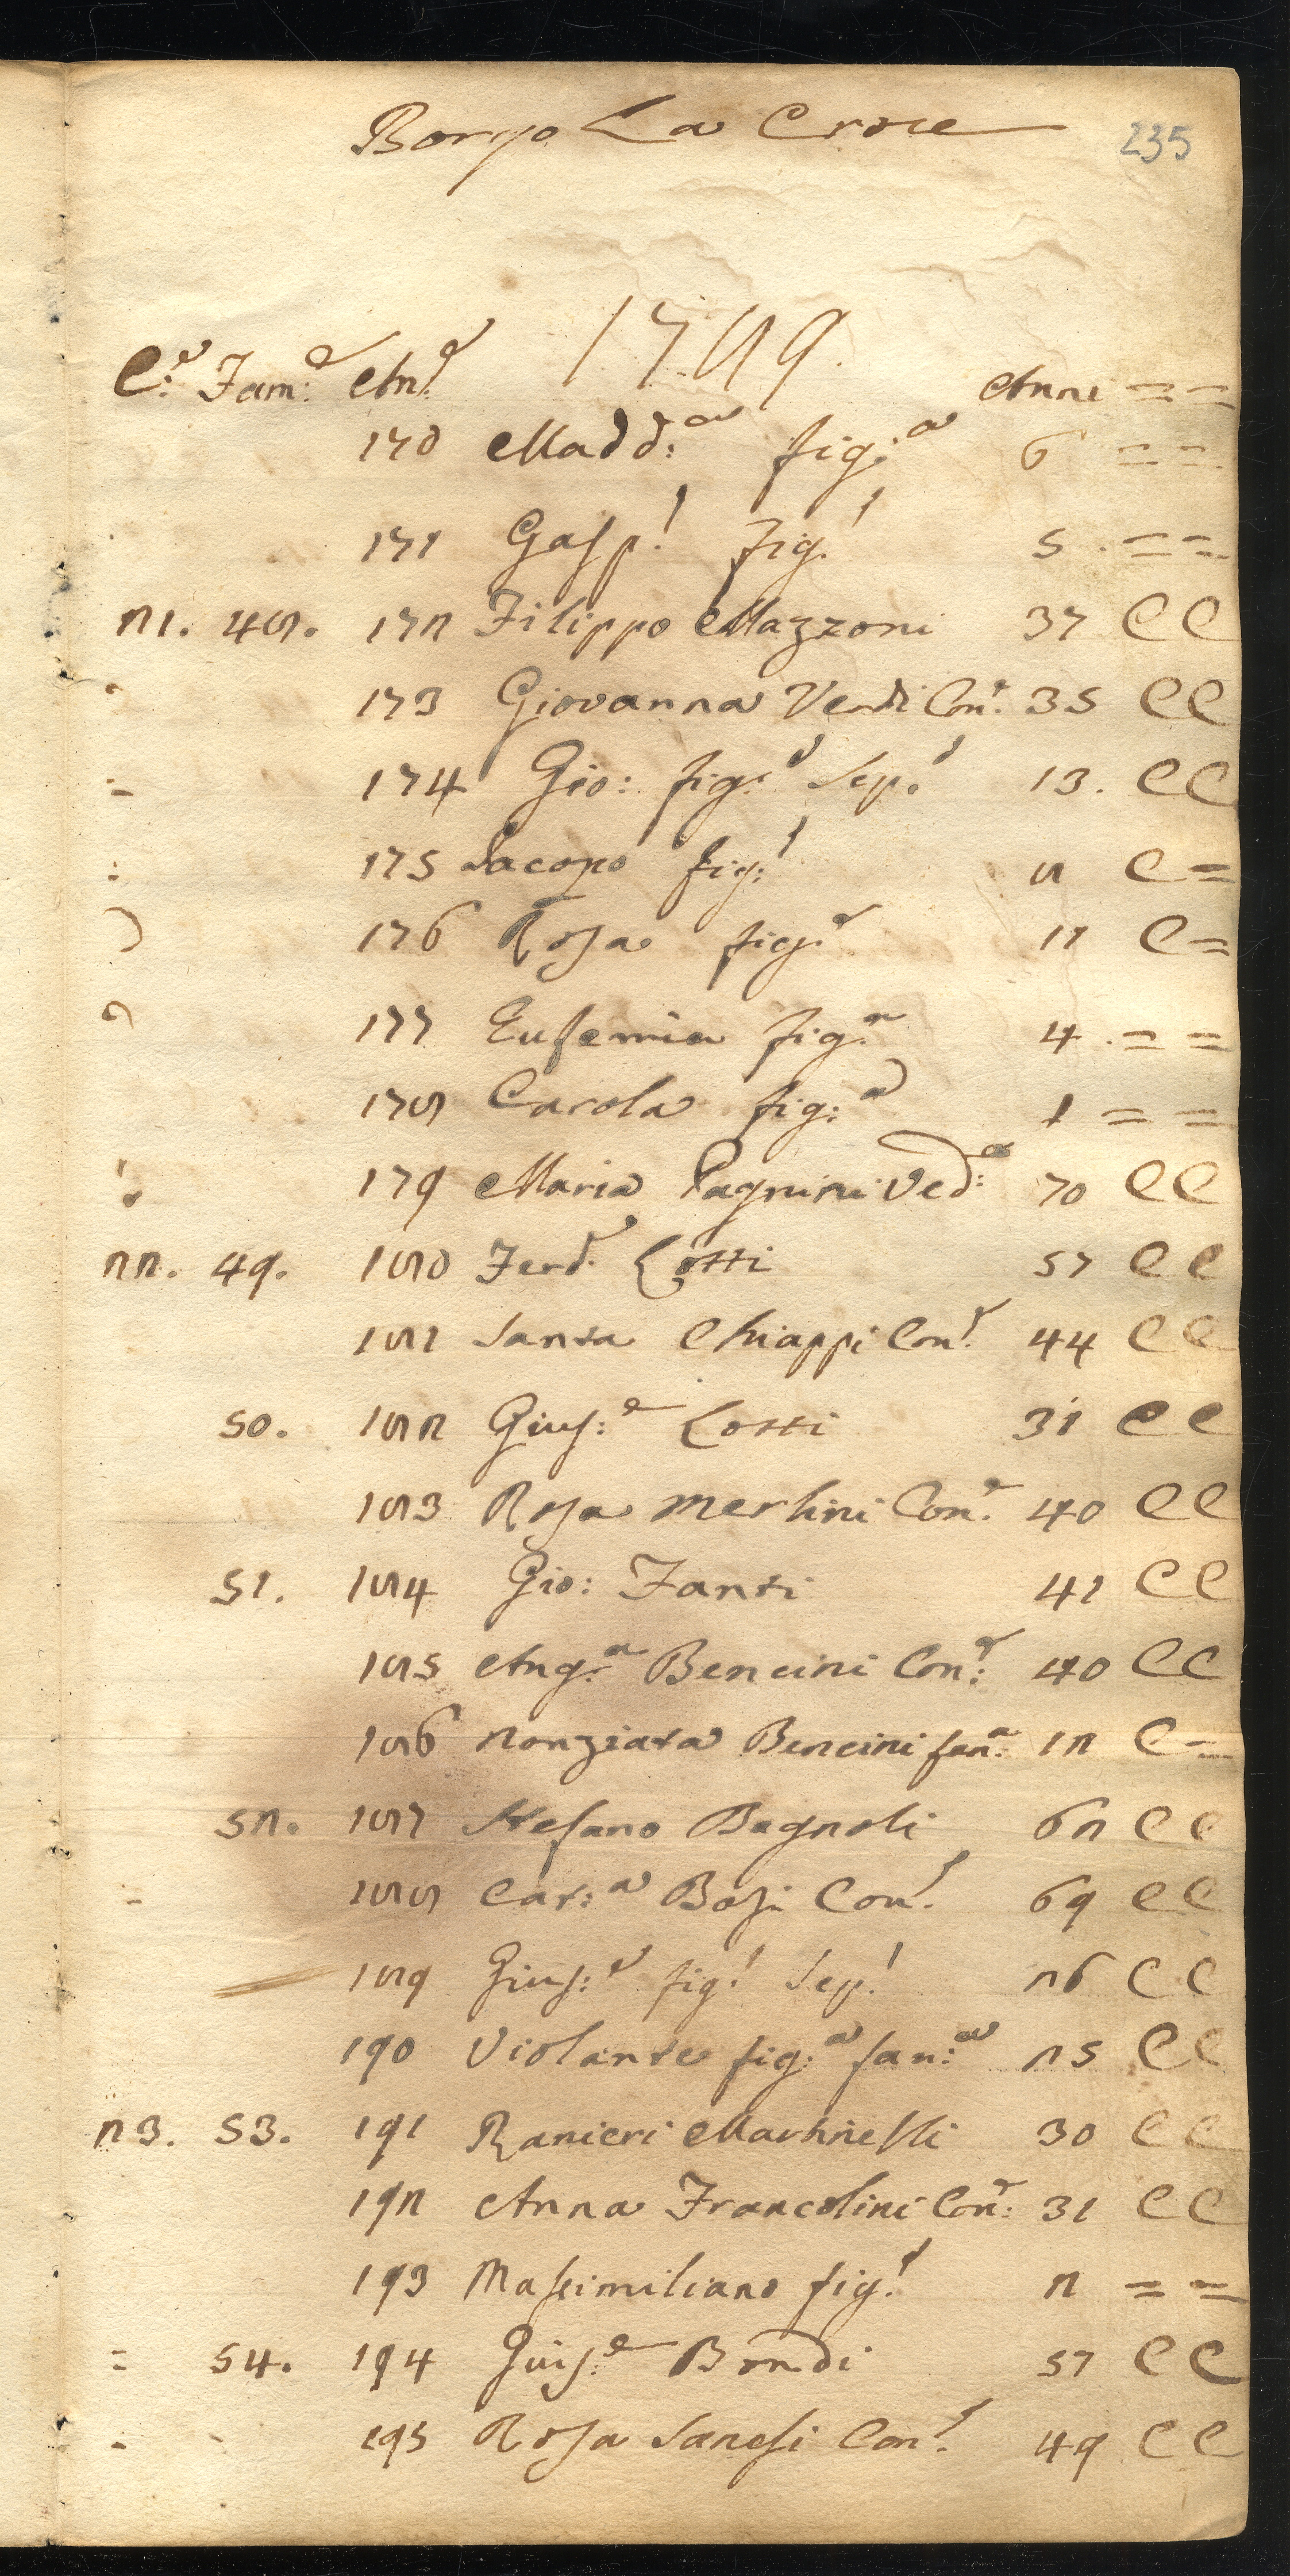 Borgo La Croce 235
1789.
C:e Fam:e An:e Anni = =
170 Madd:a fig:a 6 = =
171 Gasp.e fig.o 5 . = =
21. 48. 172 Filippo Mazzoni 37 C C
173 Giovanna Verdi Con.e 35 C C
= 174 Gio: fig.o Sep.e 13. C C
: 175 Jacopo fig:o 8 C =
176 Rosa fig.a 11 C =
177 Eufemia fig.a 4 . = =
178 Carola fig:a 1 = =
179 Maria Pagnini Ved:a 70 C C
22. 49. 180 Ferd.o Lotti 57 C C
181 Santa Chiappi Con.e 44 C C
50. 182 Gius:e Lotti 31 C C
183 Rosa Merlini Con.e 40 C C
51. 184 Gio: Fanti 41 C C
185 Ang.a Bencini Con:e 40 C C
186 Nonziata Bencini fan:a 12 C =
52. 187 Stefano Bagnoli 62 C C
188 Cat:a Bosi Con.e 69 C C
189 Gius:e fig.o Sep.e 26 C C
190 Violante fig:a fan:a 25 C C
23. 53. 191 Ranieri Martinelli 30 C C
192 Anna Francolini Con:e 31 C C
193 Massimiliano fig.o 2 = =
= 54. 194 Gius:e Bondi 57 C C
195 Rosa Sanesi Con.e 49 C C